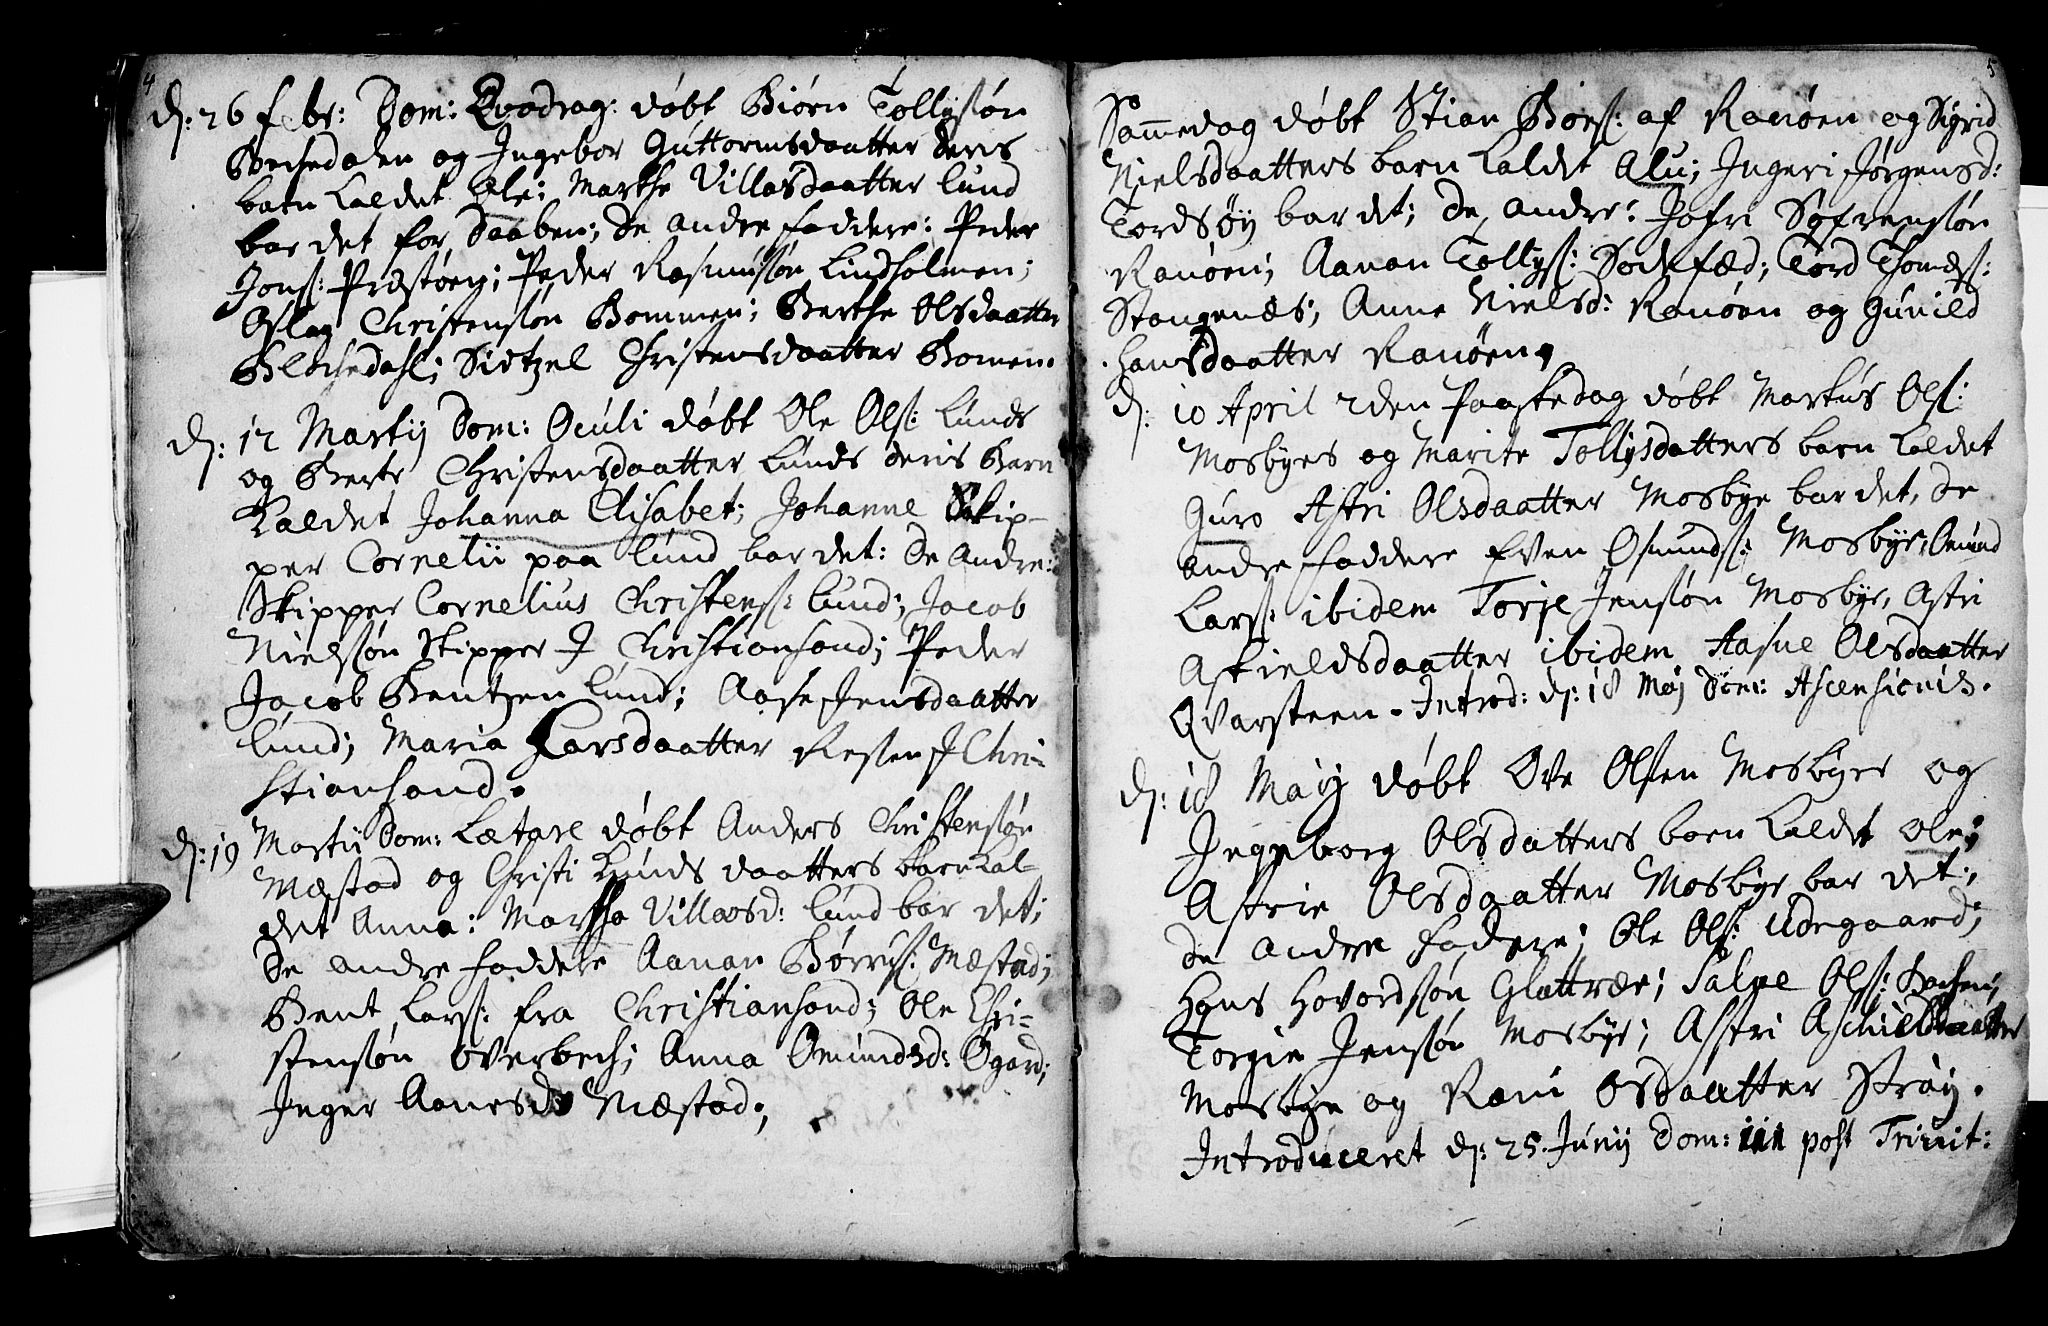 4
d: 26 febr: Dom: Qvadrag: döbt Biörn Tollÿssön
Bechedalen og Ingebor Guttormsdaatter deris
barn kaldet Ole; Marthe Villasdaatter Lund
bar det for daaben; de andre faddere: Peder
Jons: Præstöen; Peder Rasmussön Lindholmen;
Aslag Christenssön Bommen; Berthe Olsdaatter
Blechedahl; Sidtzel Christensdaatter Bomen.
d: 12 Martij Dom: Oculi döbt Ole Ols: Lunds
og Berte Christensdaatter Lunds deris Barn
kaldet Johanna Elisabet; Johanne Skip-
per Cornelii paa Lund bar det: de andre:
Skipper Cornelius Christens: Lund; Jacob
Nielssön Skipper I Christiansand; Peder
Jacob Bentzen Lund; Aase Jensdaatter
Lund; Maria Larsdaatter Resten I Chri-
stiansand.
d: 19 Martii Dom: Lætare döbt Anders Christenssön
Mæstad og Christi Knudsdaatters barn kal-
det Anna: Marthe Villaosd: Lund bar det;
de andre faddere Aanan Börrys: Mæstad;
Bent Lars: fra Christiansand; Ole Chri-
stenssön Overbech; Anna Omundsd: Ögard;
Inger Aanesd Mæstad;
5
Sammedag döbt Stian Börs: af Ranöen og Sigrid
Nielsdaatters barn kaldet Alu; Ingeri Jörgensd:
Tordsöÿ bar det; de andre: Jofri Söfrenssön
Ranöen; Aanan Tollÿs: Sodefæd; Tord Thomæs:
Stangenæs; Anne Nielsd: Ranöen og Gunild
Hansdaatter Ranöen.
d: 10 April 2den Paaskedag döbt Markus Ols:
Mosbÿes og Marite Tollÿsdatters barn kaldet
Guro Astri Olsdaatter Mosbÿe bar det, de
andre faddere Even Osmunds: Mosbÿe; Omund
Lars: ibidem Torje Jenssön Mosbÿe, Astri
Askieldsdaatter ibidem Aasne Olsdaatter
Qvarsteen. Introd: d: 18 Maj Dom: Ascensionis.
d: 18 Maÿ döbt Ove Olsen Mosbÿes og
Ingeborg Olsdatters barn kaldet Ole;
Astrie Olsdaatter Mosbÿe bar det;
de andre fadere; Ole Ols: Udegaard;
Hans Hovordssön Glattræe; Salve Ols: Bachen;
Torgie Jenssön Mosbÿe; Astri Aschieldsdaatter
Mosbÿe og Rani Osdaatter Straÿ.
Introduceret d: 25. Junij Dom: III post Trinit: